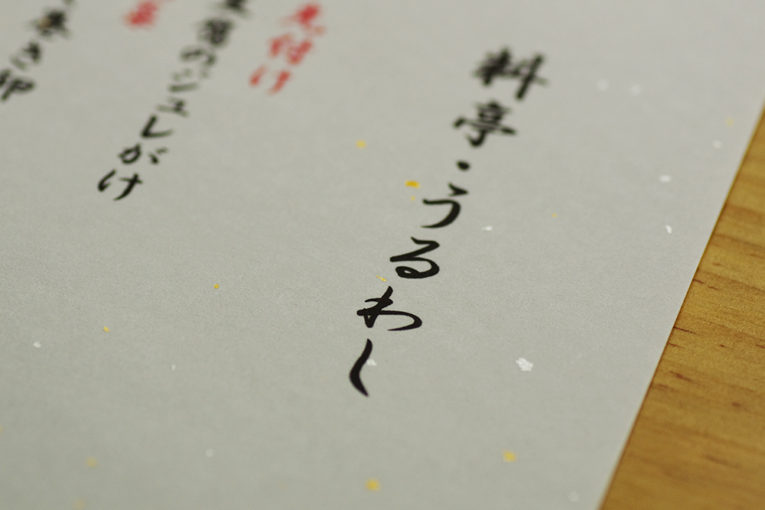 料亭・うるわし
先付け
豆腐のジュレがけ
巻き卵